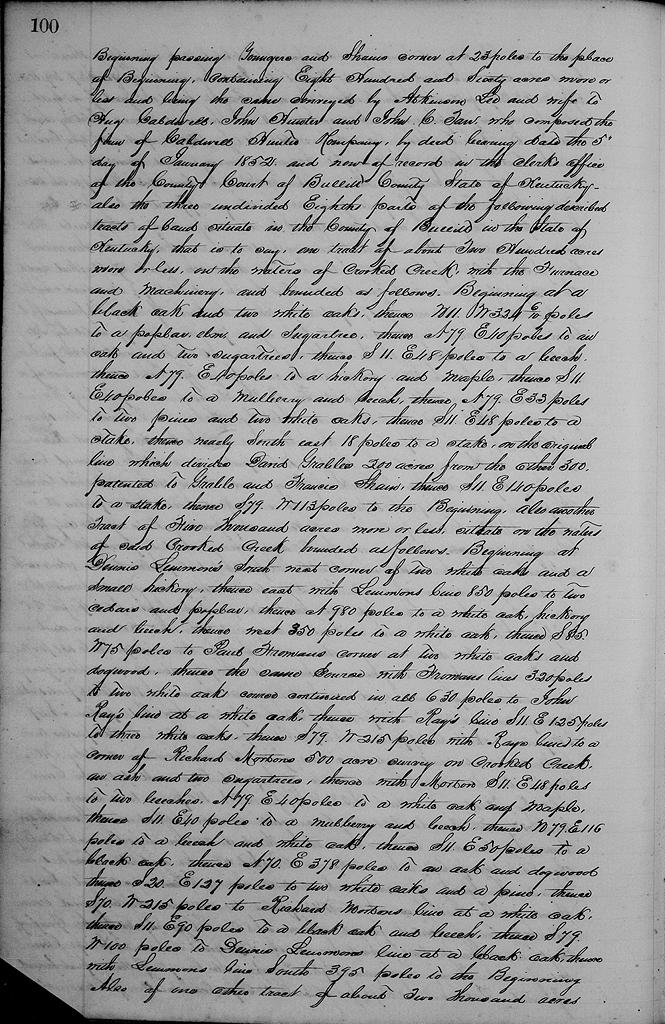 100
Beginning passing Youngers and Shains corner at 23 poles to the place
of Beginning, containing Eight Hundred and Sixty acres more or
less and being the same conveyed by Atkinson Lee and wife to
Aug Caldwell, John Hunter and John C. who composed the
firm of Caldwell Hunter Kompany, by deed bearing date the 5th
day of January 1852, and now of record in the clerks office
of the County Court of Bullitt County State of Kentucky-
also the three undivided Eighths parts of the following described
tracts of land situate in the County of Bullitt in the State of
Kentucky, that is to say, one tract of about Two Hundred acres
more or less, on the waters of Crooked Creek, with the Furnace
and Machinery, and bounded as follows. Beginning at a
black oak and two white oaks, thence N 11. W 324 6/10 poles
to a poplar, elm, and Sugartree, thence N 79 E 40 poles to an
oak and two sugartrees, thence S 11. E 48 poles to a beech,
thence N 79. E 40 poles to a hickory and maple, thence S 11
E 40 poles to a Mulberry and beech, thence N 79. E 33 poles
to two pines and two white oaks, thence S 11. E 48 poles to a
stake, thence nearly South east 18 poles to a stake, on the original
line which divides David 200 acres from the other 300.
patented to and Francis Shain, thence S 11. E 140 poles
to a stake, thence S 79. W 113 poles to the Beginning, also another
Tract of Five Thousand acres more or less, situate on the waters
of said Crooked Creek bounded as follows. Beginning at
Dennis Lemmons South west corner of two white oaks and a
small hickory, thence east with Lemmons line 850 poles to two
cedars and poplar, thence at 980 poles to a white oak, hickory
and beech, thence west 350 poles to a white oak, thence S 85
W 75 poles to Paul Fromans corner at two white oaks and
dogwood, thence the same course with Fromans lines 320 poles
to two white oaks course continued in all 630 poles to John
Rays line at a white oak, thence with Ray's line S 11. E 125 poles
to three white oaks. thence S 79. W 215 poles with Rays line to a
corner of Richard Mortons 500 acre survey on Crooked Creek,
an ash and two sugartrees, thence with Morton S 11. E 48 poles
to two beeches, N 79. E 40 poles to a white oak and maple,
thence S 11. E 40 poles to a mulberry and beech, thence N 79. E 116
poles to a beech and white oak, thence S 11. E 50 poles to a
black oak, thence N 70. E 378 poles to an oak and dogwood
thence S 20. E 127 poles to two white oaks and a pine, thence
S 70. W 215 poles to Richard Mortons line at a white oak,
thence S 11. E 90 poles to a black oak and beech, thence S 79.
W 100 poles to Dennis Lemmons line at a black oak, thence
with Lemmons line South 395 poles to the Beginning
Also of one other tract of about Two thousand acres